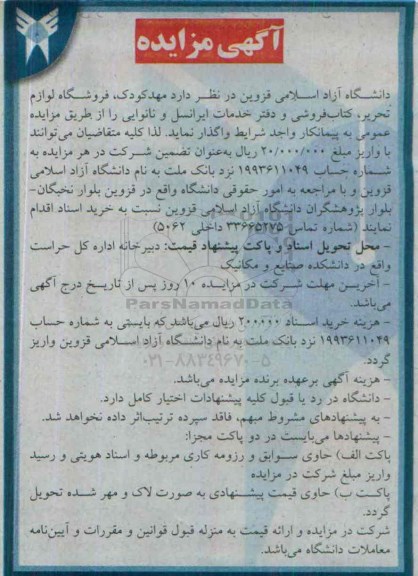 آگهی مزایده
دانشگاه آزاد اسلامی قزوین در نظر دارد مهدکودک، فروشگاه لوازم
تحریر، کتاب‌فروشی و دفتر خدمات ایرانسل و نانوایی را از طریق مزایده
عمومی به پیمانکار واجد شرایط واگذار نماید. لذا کلیه متقاضیان می‌توانند
با واریز مبلغ ۲۰/۰۰۰/۰۰۰ ریال به‌عنوان تضمین شرکت در هر مزایده به
شماره حساب ۱۹۹۳۶۱۱۰۴۹ نزد بانک ملت به نام دانشگاه آزاد اسلامی
قزوین و با مراجعه به امور حقوقی دانشگاه واقع در قزوین بلوار نخبگان-
بلوار پژوهشگران دانشگاه آزاد اسلامی قزوین نسبت به خرید اسناد اقدام
نمایند (شماره تماس: ۳۳۶۶۵۲۷۵ داخلی ۵۰۶۲)
- محل تحویل اسناد و پاکت پیشنهاد قیمت: دبیرخانه اداره کل حراست
واقع در دانشکده صنایع و مکانیک
- آخرین مهلت شرکت در مزایده ۱۰ روز پس از تاریخ درج آگهی
می‌باشد.
ParsNamadData
- هزینه خرید اسناد ۲۰۰۰۰۰ ریال می‌باشد که بایستی به شماره حساب
۱۹۹۳۶۱۱۰۴۹ نزد بانک ملت به نام دانشگاه آزاد اسلامی قزوین واریز
گردد.
۰۲۱-۸۸۳۴۹۶۷۰-۵
- هزینه آگهی برعهده برنده مزایده می‌باشد.
- دانشگاه در رد یا قبول کلیه پیشنهادات اختیار کامل دارد.
- به پیشنهادهای مشروط مبهم، فاقد سپرده ترتیب‌اثر داده نخواهد شد.
- پیشنهادها می‌بایست در دو پاکت مجزا:
پاکت الف) حاوی سوابق و رزومه کاری مربوطه و اسناد هویتی و رسید
واریز مبلغ شرکت در مزایده
پاکت ب) حاوی قیمت پیشنهادی به صورت لاک و مهر شده تحویل
گردد.
شرکت در مزایده و ارائه قیمت به منزله قبول قوانین و مقررات و آیین‌نامه
معاملات دانشگاه می‌باشد.